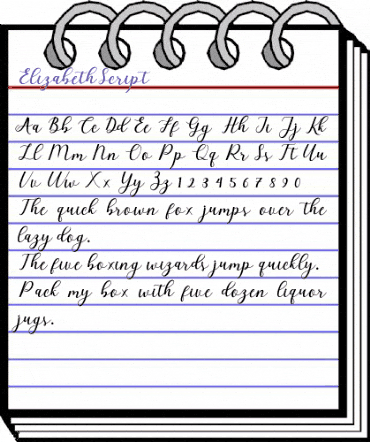 Elizabeth Script
Aa Bb Cc Dd Ee Ff Gg Hh Ii Jj Kk
Ll Mm Nn Oo Pp Qq Rr Ss Tt Uu
Vv Ww Xx Yy Zz 1 2 3 4 5 6 7 8 9 0
The quick brown fox jumps over the
lazy dog.
The five boxing wizards jump quickly.
Pack my box with five dozen liquor
jugs.